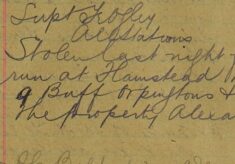 Supt
All Stations
Stolen last night f
run at Hamstead M
9 Buff Orpingtons &
the property Alexa